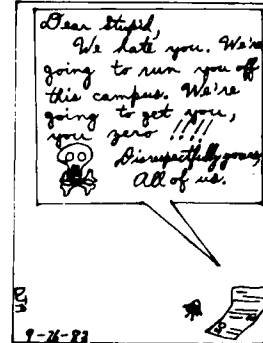 Dear Stupid,
We hate you. We're
going to run you off
this campus. We're
going to get you,
you zero !!!!
Disrespectfully yours,
All of us.
9-26-83